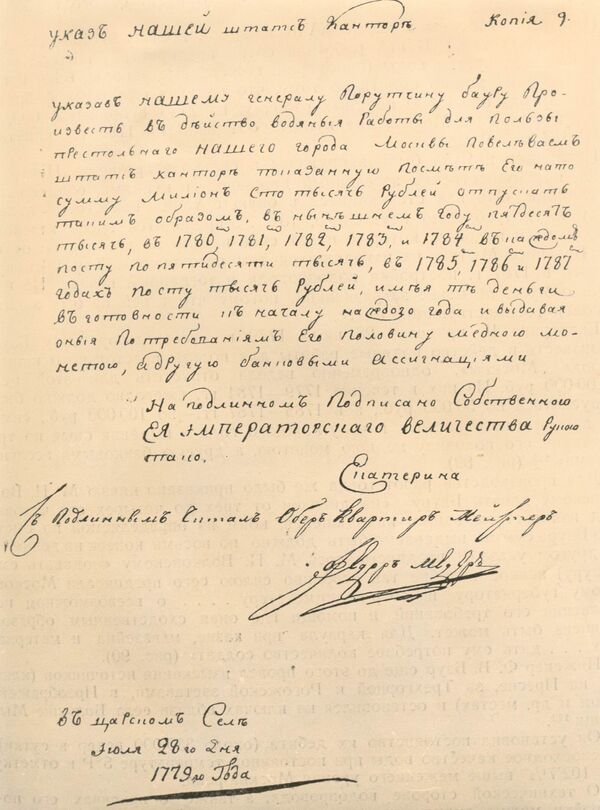 указъ нашей штатсъ канторѣ Копія 9.
указавъ нашему генералу Порутчику бауру Про-
известь въ дѣйство водяныя работы для пользы
престольнаго нашего города Москвы повелѣваемъ
штатсъ канторѣ показанную посмѣтѣ Его нато
сумму Милионъ сто тысячь рублей отпускать
такимъ образомъ, въ нынѣшнемъ году пятдесятъ
тысячь, въ 1780, 1781, 1782, 1783, и 1784 въ каждомъ
посту по пятидесяти тысячь, въ 1785, 1786 и 1787
годахъ по сту тысячь рублей, имѣя тѣ деньги
въ готовности къ началу каждого года и выдавая
оныя по требованіямъ Его половину медною мо-
нетою, а другую банковыми Ассигнаціями
На подлинномъ подписано Собственною
Ея императорскаго величества рукою
тако.
Екатерина
Съ подлиннымъ читалъ Оберъ Квартиръ Мейстеръ
въ царскомъ Селѣ
июля 28го дня
1779го года